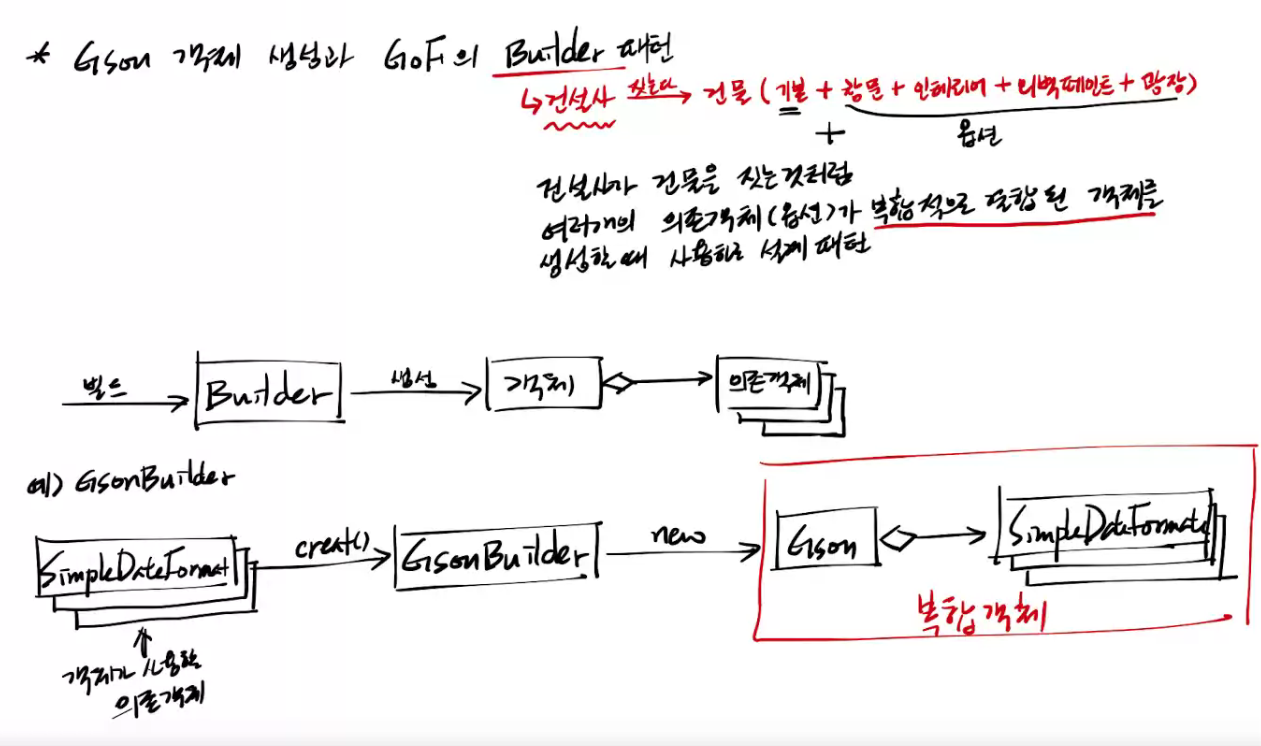 * Gson 객체 생성과 GoF의 Builder 패턴
↳ 건설사 짓는다 → 건물 (기본 + 창문 + 인테리어 + 외벽페인트 + 광장)
+ 옵션
건설사가 건물을 짓는것처럼
여러개의 의존객체(옵션)가 복합적으로 조합된 객체를
생성할 때 사용하는 설계 패턴
빌드 → Builder 생성 → 객체 → 의존객체
예) GsonBuilder
SimpleDateFormat creat() → GsonBuilder new → Gson → SimpleDateFormat
복합객체
↑
객체가 사용할
의존객체